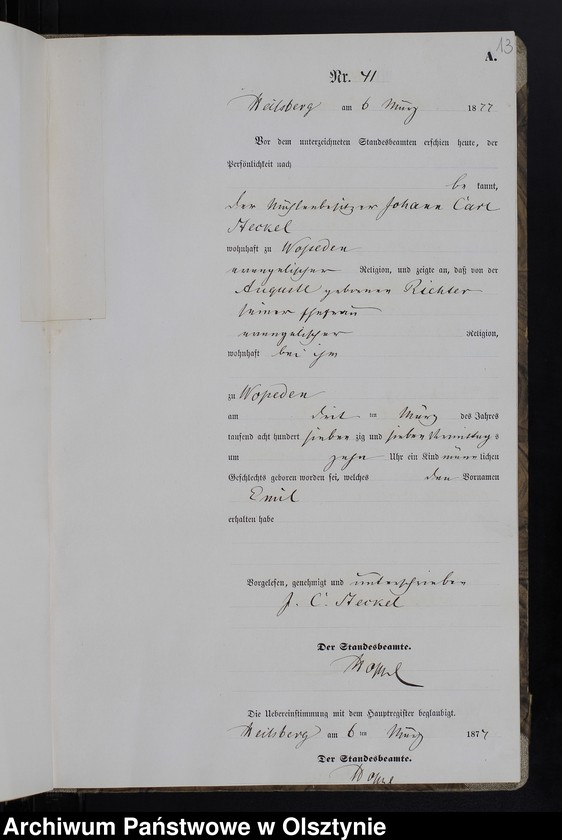 13
A.
Nr. 41
Heilsberg am 6 März 1877
Vor dem unterzeichneten Standesbeamten erschien heute, der
Persönlichkeit nach
be kannt,
der Mühlenbesitzer Johann Carl
Steckel
wohnhaft zu Wopeden
evangelischer Religion, und zeigte an, daß von der
August geborenen Richter
seiner Ehefrau
evangelischer Religion,
wohnhaft bei ihm
zu Wopeden
am ten März des Jahres
tausend acht hundert sieben zig und sieben Vormittags
um zehn Uhr ein Kind männlichen
Geschlechts geboren worden sei, welches den Vornamen
Emil
erhalten habe
Vorgelesen, genehmigt und unterschrieben
J. C. Steckel
Der Standesbeamte.
Die Uebereinstimmung mit dem Hauptregister beglaubigt.
Heilsberg am 6 ten März 1877
Der Standesbeamte.
Archiwum Państwowe w Olsztynie